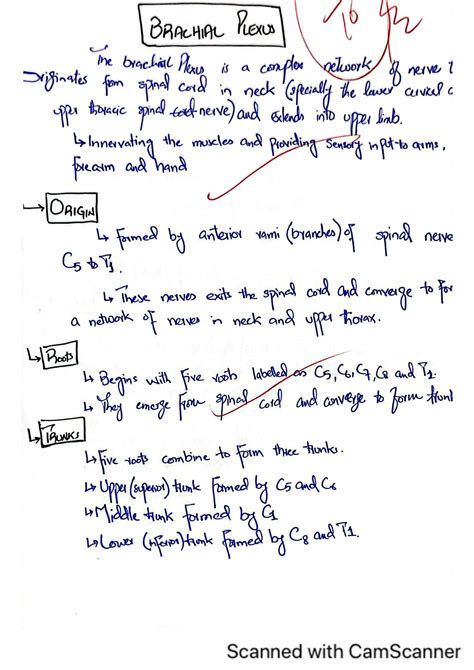 BRACHIAL PLEXUS
The brachial Plexus is a complex network of nerve
Originates from spinal cord in neck (specially the lower cervical c
upper thoracic spinal cord nerve) and extends into upper limb.
↳ Innervating the muscles and providing sensory input to arms,
forearm and hand
→ ORIGIN
↳ formed by anterior rami (branches) of spinal nerve
C5 to T1.
↳ These nerves exits the spinal cord and converge to for
a network of nerves in neck and upper thorax.
↳ Roots
↳ Begins with five roots labelled as C5, C6, C7, C8 and T1.
↳ They emerge from spinal cord and converge to form trunk
↳ TRUNKS
↳ Five roots combine to form three trunks.
↳ Upper (superior) trunk formed by C5 and C6
↳ Middle trunk formed by C7
↳ Lower (inferior) trunk formed by C8 and T1.
Scanned with CamScanner